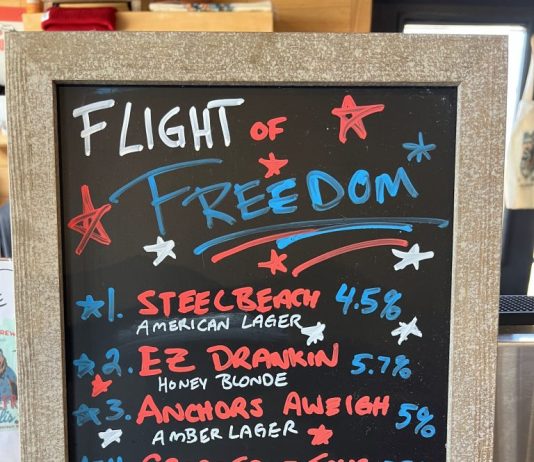 FLIGHT OF
FREEDOM
1. STEELBEACH 4.5%
AMERICAN LAGER
2. EZ DRANKIN 5.7%
HONEY BLONDE
3. ANCHORS AWEIGH 5%
AMBER LAGER